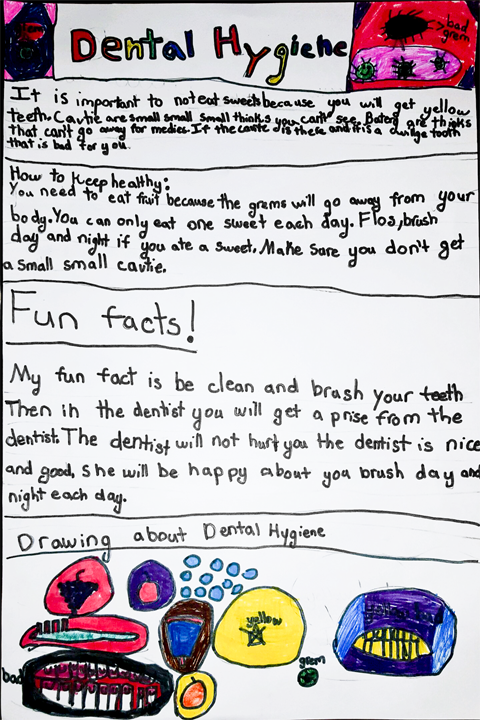 Dental Hygiene
bad
grem
It is important to not eat sweets because you will get yellow
teeth. Cavitie are small small small thinks you can't see. Bateria are thinks
that can't go away for medies. If the cavite is there and if is a
tooth
that is bad for you.
How to keep healthy:
You need to eat fruit because the grems will go away from your
body. You can only eat one sweet each day. Flos, brush
day and night if you ate a sweet. Make sure you don't get
a small small cavtie.
Fun facts!
My fun fact is be clean and brush your teeth
Then in the dentist you will get a prise from the
dentist. The dentist will not hurt you the dentist is nice
and good, She will be happy about you brush day and
night each day.
Drawing about Dental Hygiene
yellow
bad
grem